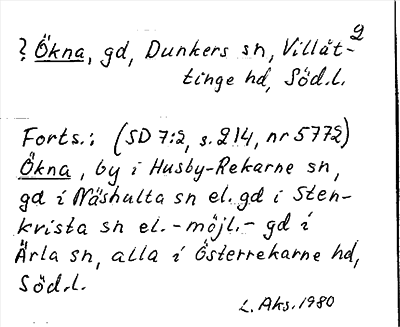 2
? Ökna, gd, Dunkers sn, Villåt-
tinge hd, Söd.l.
Forts.: (SD 7:2, s. 214, nr 5772)
Ökna, by i Husby-Rekarne sn,
gd i Näshulta sn el. gd i Sten-
kvista sn el. - möjl. - gd i
Ärla sn, alla i Österrekarne hd,
Söd.l.
L. Aks. 1980